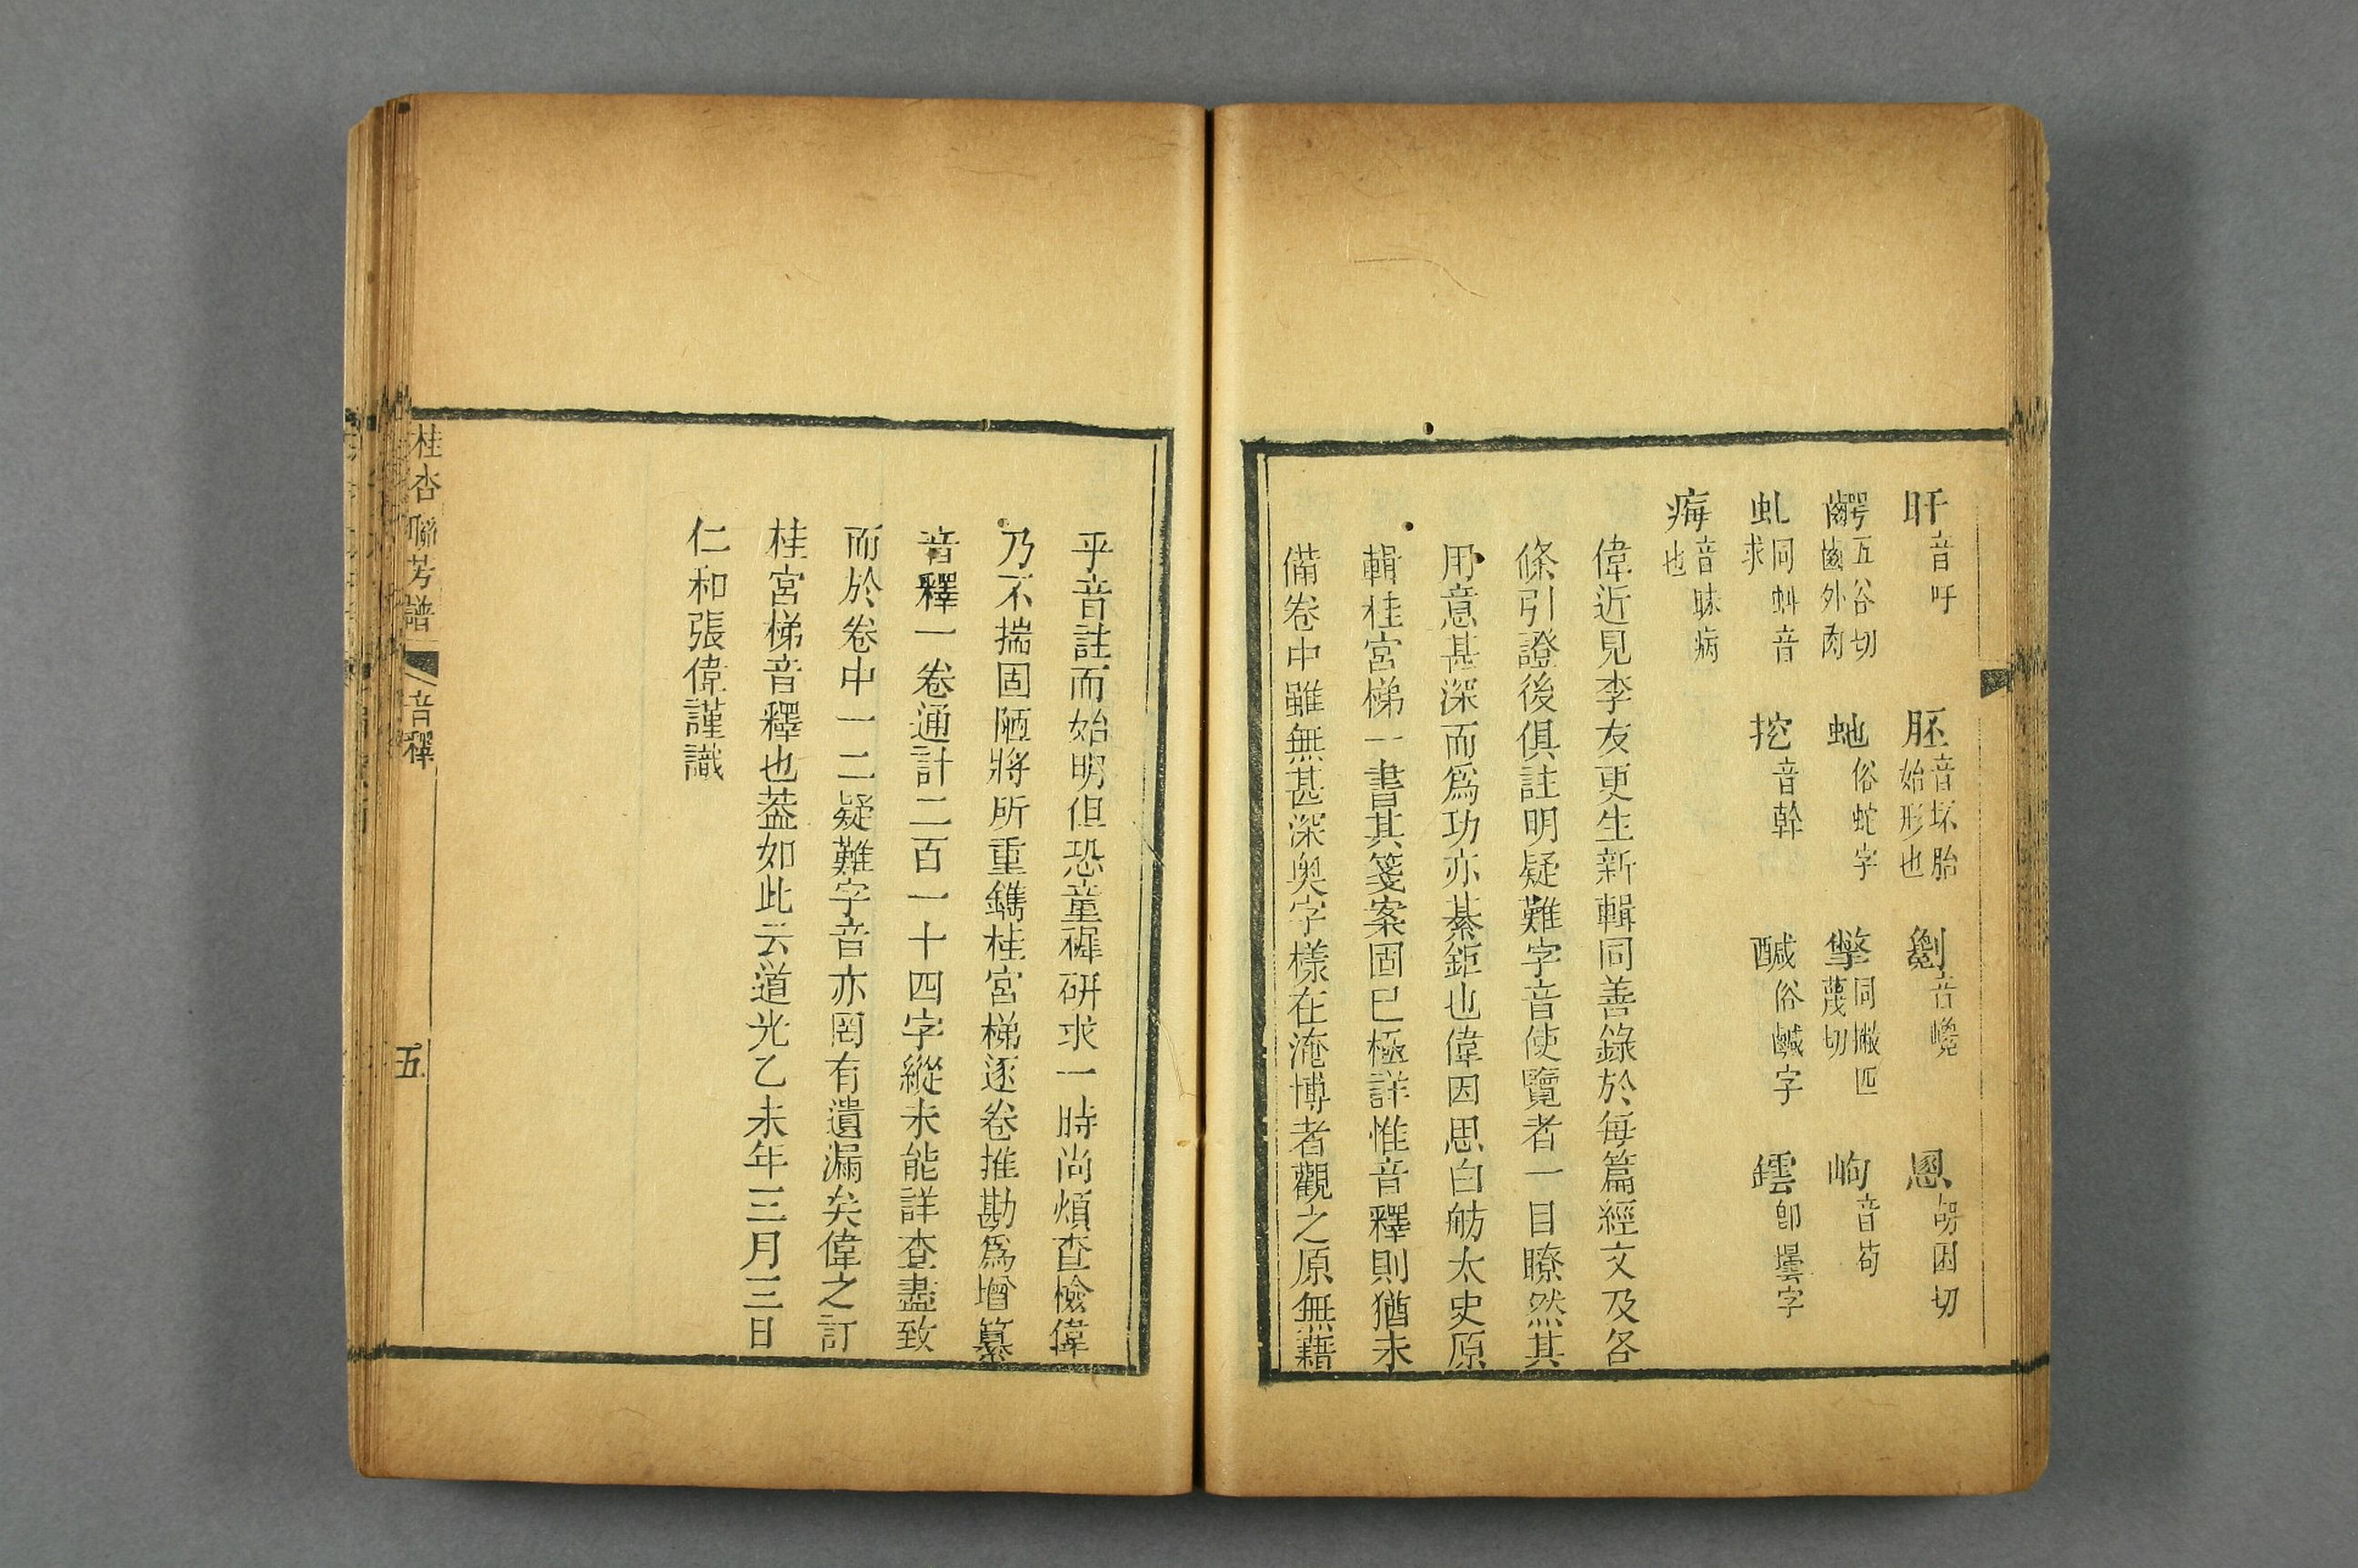 盱音吁　胚音坏胎始形也　劖音巉　慁胡困切
齶五谷切齒外肉　虵俗蛇字　撆同撇匹蔑切　岣音苟
虬同虯音求　挖音斡　醎俗鹹字　罎卽壜字
痗音昧病也
偉近見李友更生新輯同善錄於每篇經文及各
條引證後俱註明疑難字音使覽者一目瞭然其
用意甚深而爲功亦綦鉅也偉因思白舫太史原
輯桂宮梯一書其箋案固已極詳惟音釋則猶未
備卷中雖無甚深奥字樣在淹博者觀之原無藉
乎音註而始明但恐童穉研求一時尚煩查檢偉
乃不揣固陋將所重鐫桂宮梯逐卷推勘爲增纂
音釋一卷通計二百一十四字縱未能詳查盡致
而於卷中一二疑難字音亦罔有遺漏矣偉之訂
桂宮梯音釋也葢如此云道光乙未年三月三日
仁和張偉謹識
桂杏聯芳譜　音釋　五